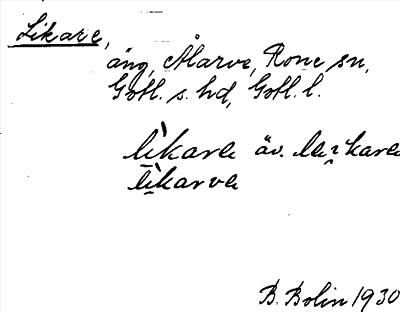 Likare,
äng, Ålarve, Rone sn,
Gotl. s. hd, Gotl. l.
lìkara äv. laikara
lìkarva
B. Bolin 1930